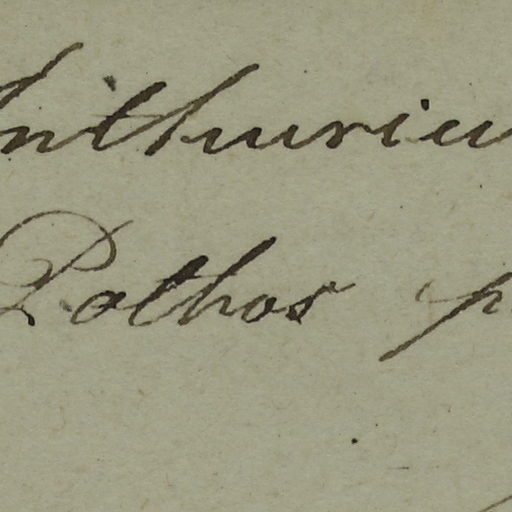 Anthuriu
Pothos p